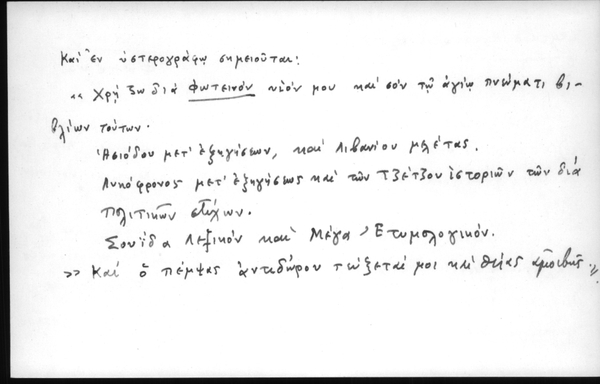 Καὶ ἐν ὑστερογράφῳ σημειοῦται:
« Χρῄζω διὰ Φωτεινὸν υἱόν μου καὶ σὸν τῷ ἁγίῳ πνεύματι βι-
βλίων τούτων.
Ἡσιόδου μετ' ἐξηγήσεων, καὶ Λιβανίου μελέτας.
Λυκόφρονος μετ' ἐξηγήσεως καὶ τῶν Τζέτζου ἱστοριῶν τῶν διὰ
πολιτικῶν στίχων.
Σουΐδα Λεξικὸν καὶ Μέγα Ἐτυμολογικόν.
>> Καὶ ὁ πέμψας ἀντιδώρου τεύξεταί μοι καὶ θείας ἀμοιβῆς.»